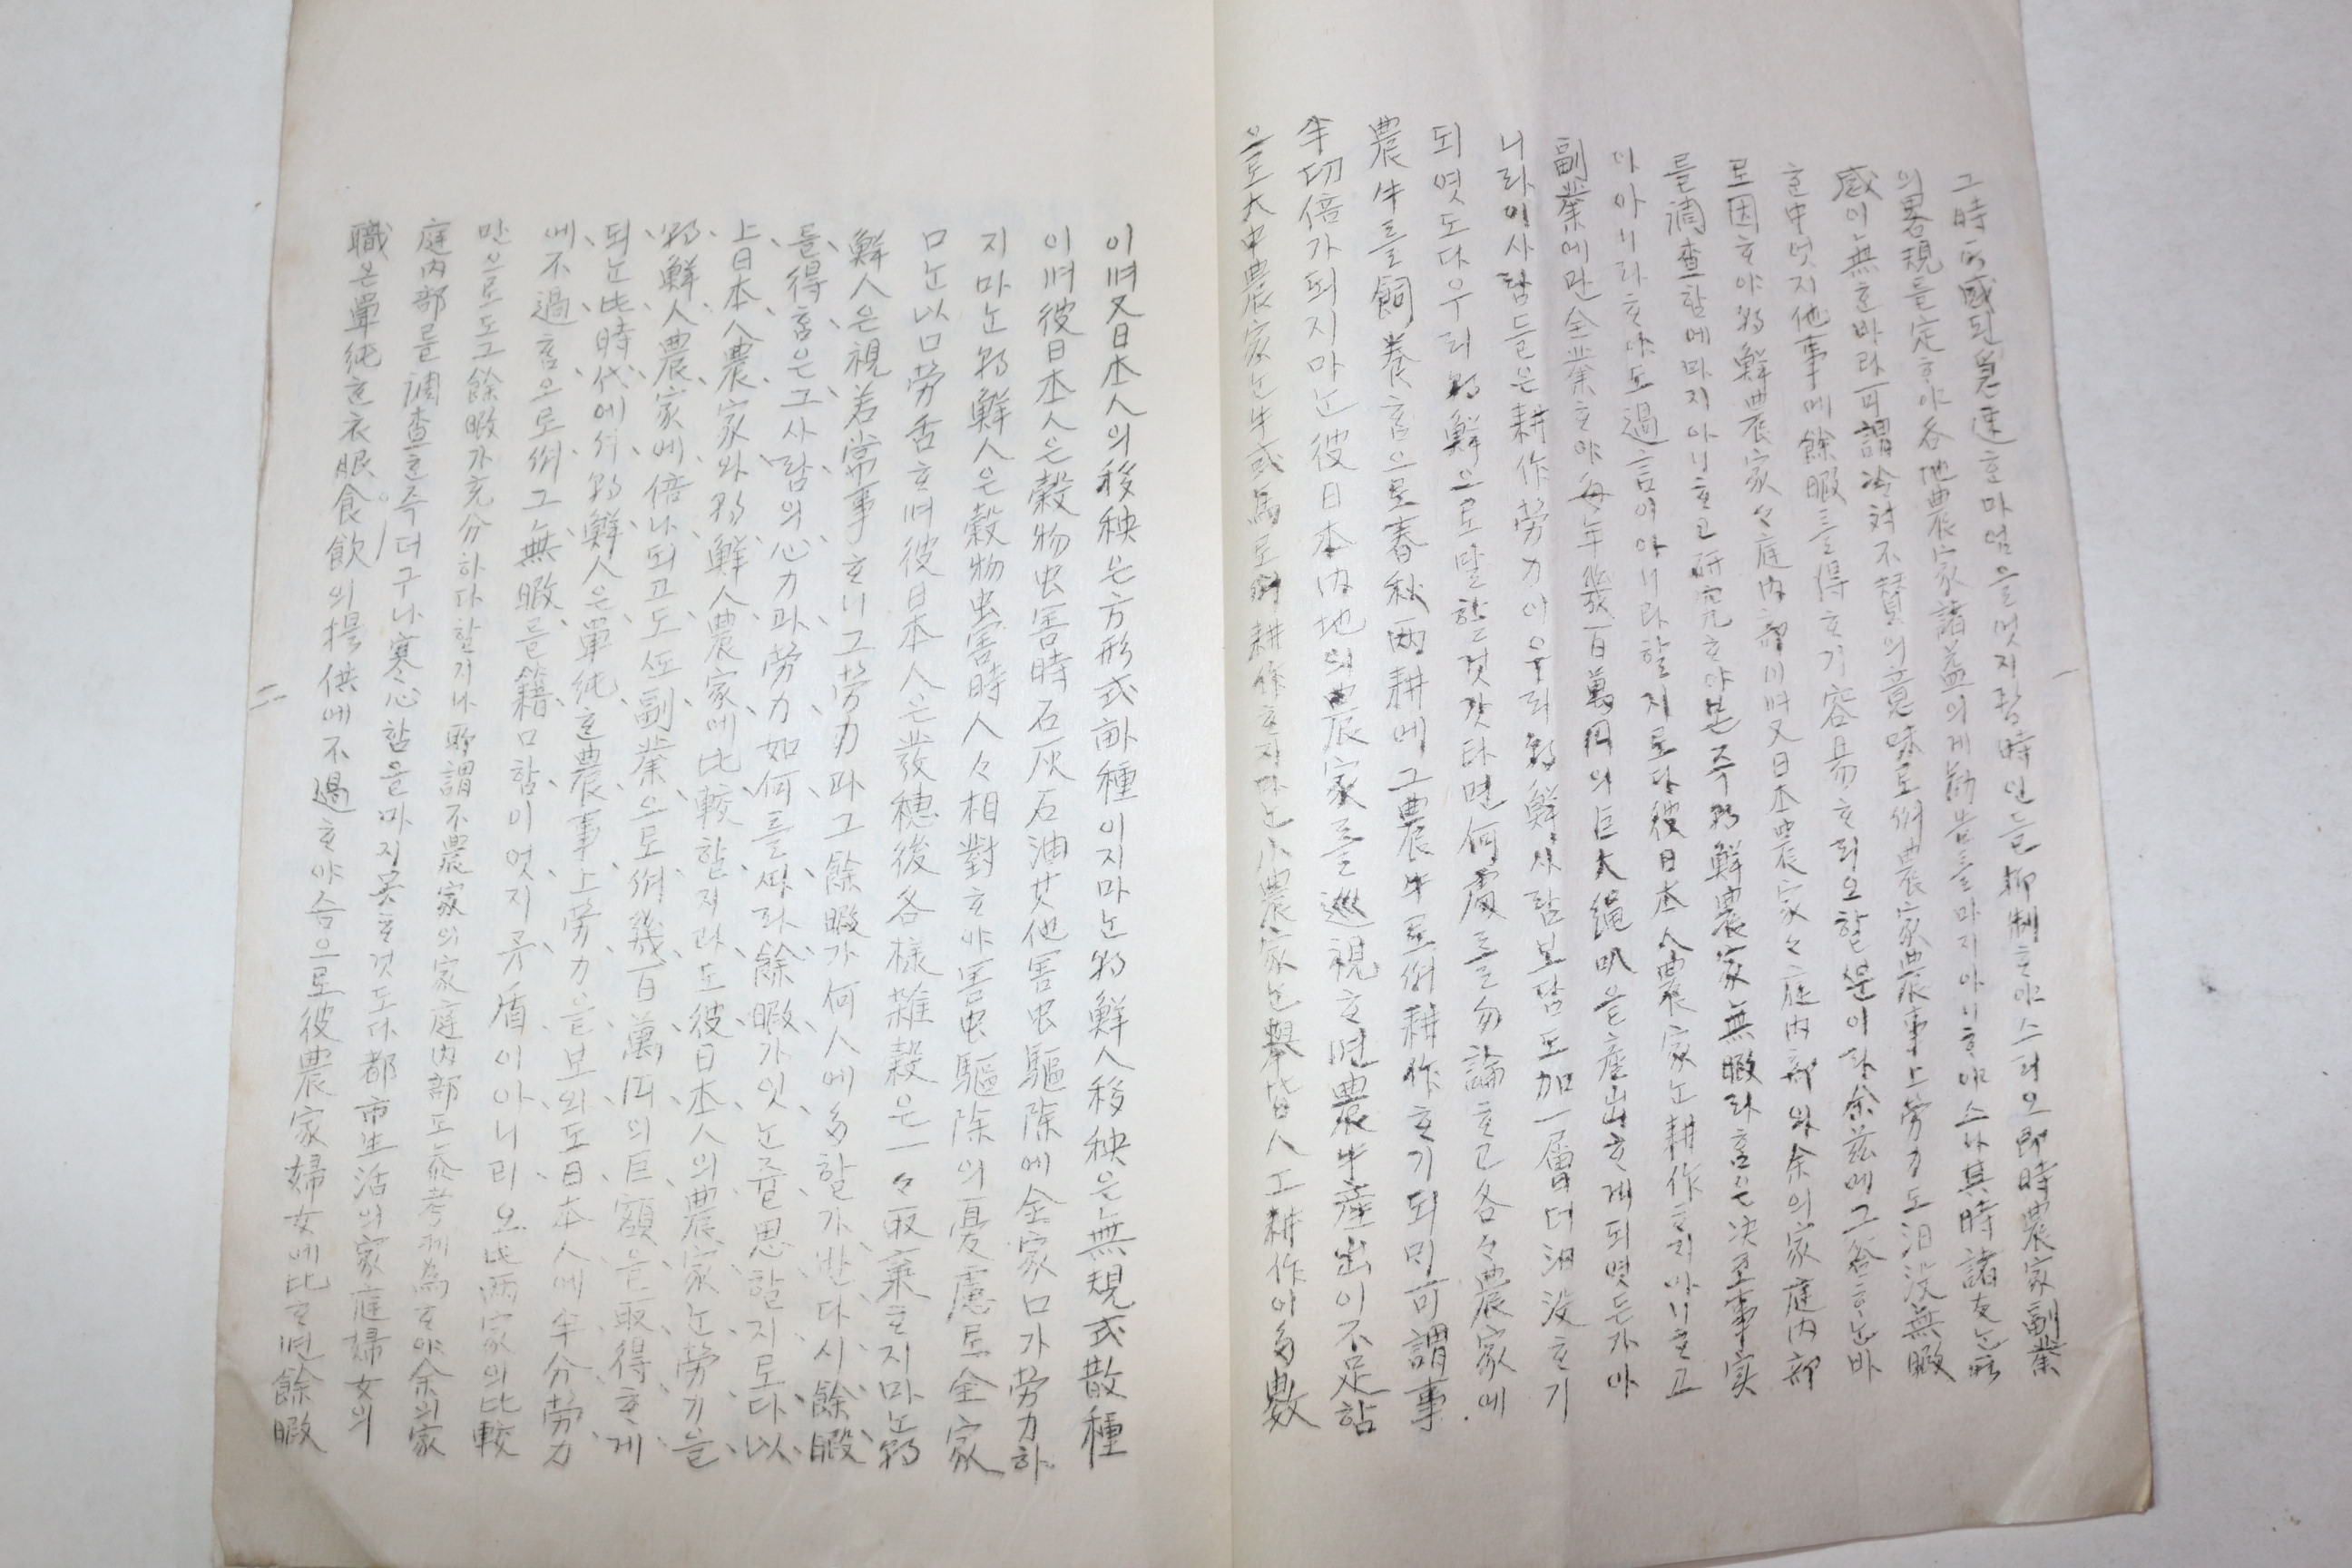 그時에感된 速호마엄을엇지참時인들抑制호야스리오即時農家副業
의畧規를定호야各地農家諸益의게勸告를마지아니하야스나其時諸友는
感이無호바라可謂冷対不賛의意味로써農家農事上勞力도汨没無暇
호中엇지他事에餘暇를得호기容易호리오할뿐이라余玆에그答ᄒᆞ는바
로因ᄒᆞ야朝鮮農家々庭内部이며又日本農家々庭内部와余의家庭内部
를調査함에마지아니호고研究호야본즉朝鮮農家無暇라홈은决코事実
이아니라호야도過言이아니라할지로다彼日本人農家는耕作호지아니호고
副業에만全業호야每年幾百萬円의巨大繩叺을産出호게되엿든가아
니라이사람들은耕作勞力이우리朝鮮사람보담도加一層더汨没호기
되엿도다우리朝鮮으로말할것갓타면何處를勿論호고各々農家에
農牛를飼養홈으로春秋両耕에그農牛로써耕作호기되며可謂事
半切倍가되지마는彼日本内地의農家를巡視호면農牛産出이不足
으로大中農家는牛或馬로써耕作호지마는小農家는擧皆人工耕作이多數
이며又日本人의移秧은方形式畝種이지마는朝鮮人移秧은無規式散種
이며彼日本人은穀物虫害時石灰石油其他害虫驅除에全家口가勞力하
지마는朝鮮人은穀物虫害時人々相對호야害虫驅除의憂慮로全家
口는以口勞舌호며彼日本人은發穗後各樣雜穀은一々取棄호지마는朝
鮮人은視若常事호니그勞力과그餘暇가何人에多할가반다시餘暇
를得홈은그사람의心力과勞力如何를따라餘暇가잇는쥴思할지로다以
上日本人農家와朝鮮人農家에比較할지라도彼日本人의農家는勞力을
朝鮮人農家에倍나되고도또副業으로써幾百萬円의巨額을取得호게
되는此時代에서朝鮮人은單純호農事上勞力을보와도日本人에半分勞力
에不過홈으로써그無暇를籍口함이엇지矛盾이아니리오此両家의比較
만으로도그餘暇가充分하다할거나所謂不農家의家庭内部도參考키爲호야余의家
庭内部를調査호즉더구나寒心함을마지못호것도다都市生活의家庭婦女의
職은單純호衣服食飮의提供에不過호야슴으로彼農家婦女에比호면餘暇
一
二